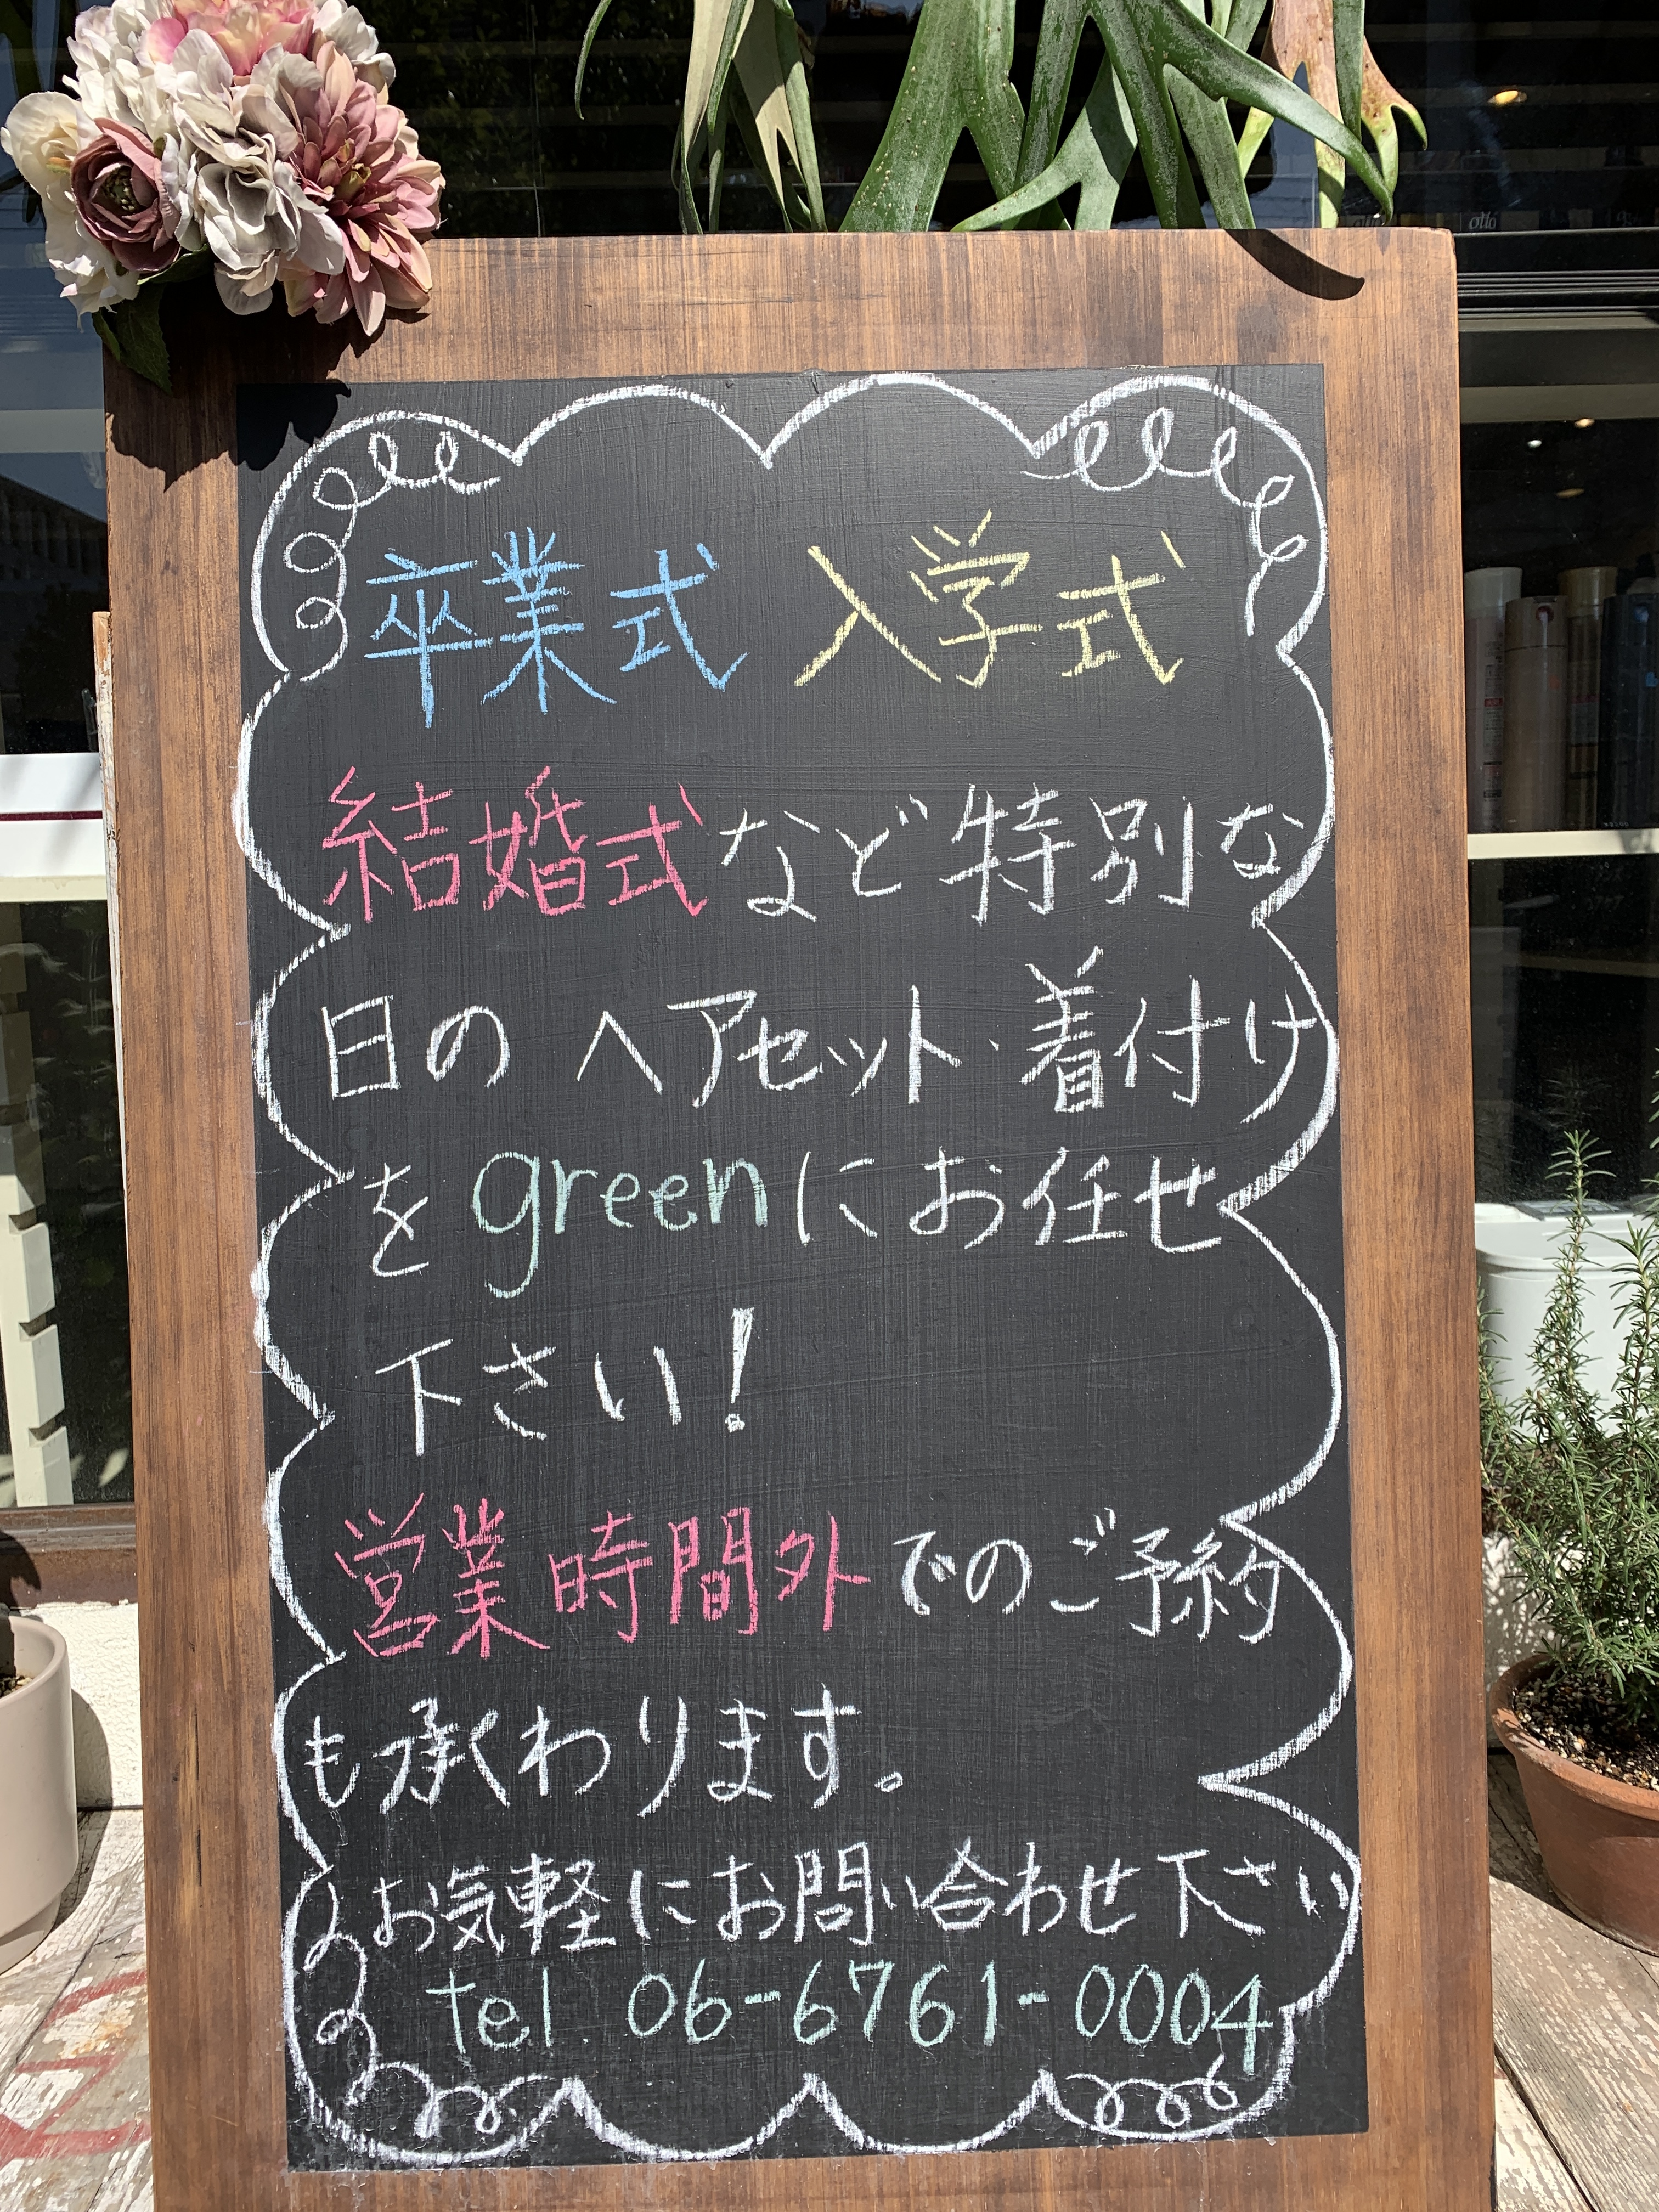 卒業式 入学式
結婚式など特別な
日の ヘアセット・着付け
を green にお任せ
下さい!
営業時間外でのご予約
も承わります。
お気軽にお問い合わせ下さい
tel 06-6761-0004
otto